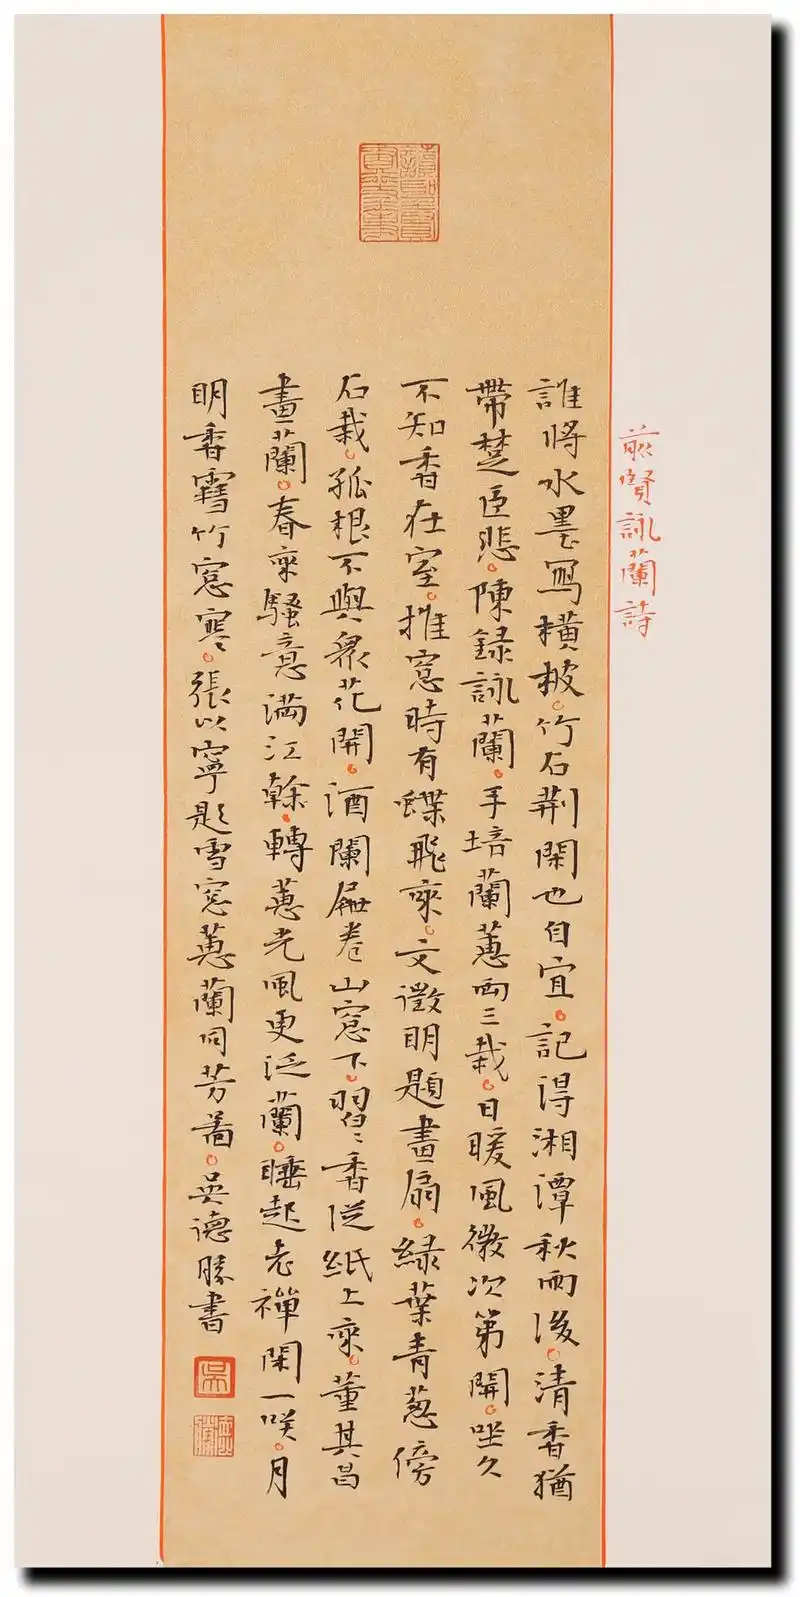 前賢詠蘭詩
誰將水墨寫橫披。竹石荆閑也自宜。記得湘潭秋雨後。清香猶
帶楚臣悲。陳録詠蘭。手培蘭蕙兩三栽。日暖風微次第開。坐久
不知香在室。推窻時有蝶飛來。文徵明題畫扇。緑葉青葱傍
石栽。孤根不與衆花開。酒闌展卷山窻下。習〻香從紙上來。董其昌
畫蘭。春來騷意滿江幹。轉蕙光風更泛蘭。睡起老禪閑一咲。月
明香靄竹窻寒。張以寧題雪窻蕙蘭同芳圖。吴德勝書
吴